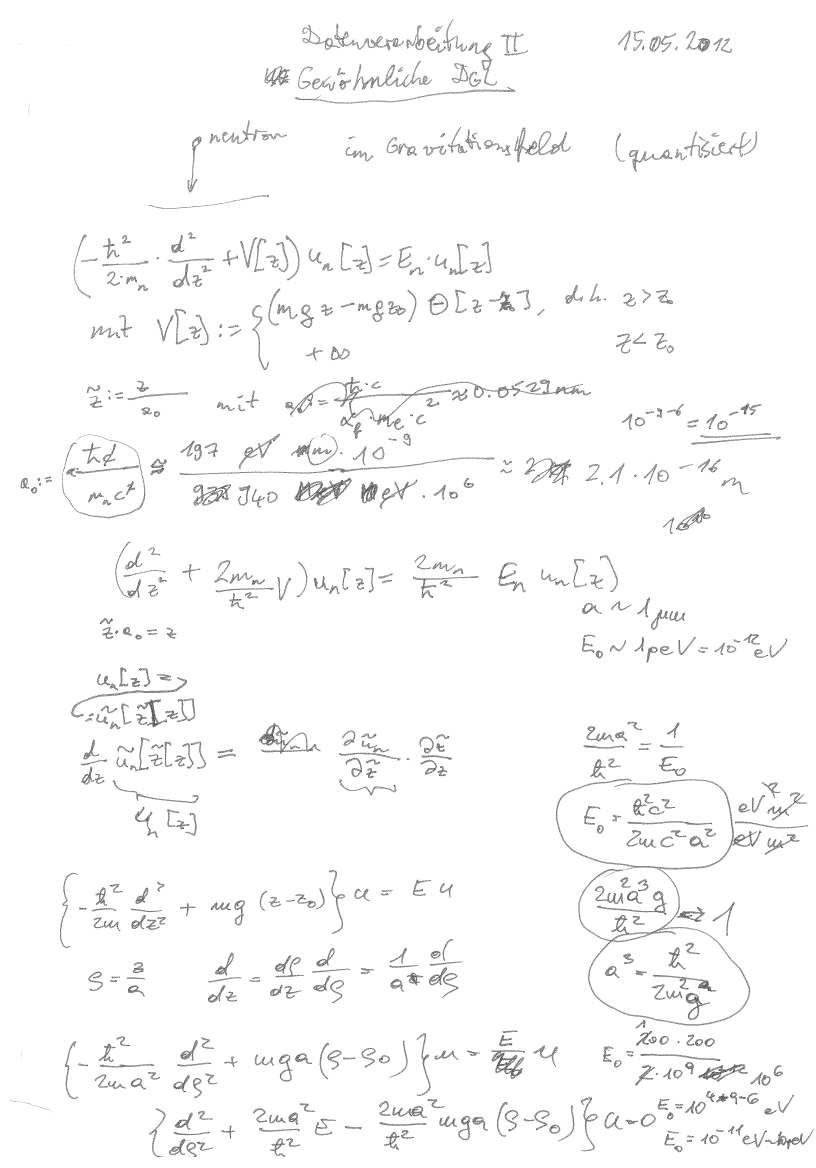 Datenverarbeitung II 15.05.2012
Gewöhnliche DGL
neutron im Gravitationsfeld (quantisiert)
(-ħ²/(2·mₙ) · d²/dz² + V[z]) uₙ[z] = Eₙ·uₙ[z]
mit V[z] := { (mgz - mgz₀) Θ[z-z₀], d.h. z > z₀
+∞ z < z₀
z̃ := z/a₀ mit a₀ = ħ·c/(α_f·mₑ·c²) ≈ 0.0529 nm
10⁻⁹⁻⁶ = 10⁻¹⁵
a₀ := ħc/(mₙc²) ≅ 197 eV m·10⁻⁹/(940 eV·10⁶) ≈ 2.1·10⁻¹⁶ m
(d²/dz² + 2mₙ/ħ² V) uₙ[z] = 2mₙ/ħ² Eₙ uₙ[z]
a ~ 1 μm
z̃·a₀ = z
E₀ ~ 1 peV = 10⁻¹² eV
uₙ[z] =
:= ũₙ[z̃[z]]
d/dz ũₙ[z̃[z]] = ∂ũₙ/∂z̃ · ∂z̃/∂z
uₙ[z]
2ma²/ħ² = 1/E₀
E₀ = ħ²c²/(2mc²a²) eV² m²/(eV m²)
{-ħ²/2m d²/dz² + mg (z-z₀)} u = E u
2m²a³g/ħ² = 1
ρ = z/a d/dz = dρ/dz d/dρ = 1/a d/dρ
a³ = ħ²/(2m²g)
{-ħ²/(2ma²) d²/dρ² + mga (ρ-ρ₀)} u = E u
E₀ = 200·200/(2·10⁹ 10⁶
{d²/dρ² + 2ma²/ħ² E - 2ma²/ħ² mga (ρ-ρ₀)} u = 0
E₀ = 10⁴⁻⁹⁻⁶ eV
E₀ = 10⁻¹¹ eV ~ 10 peV